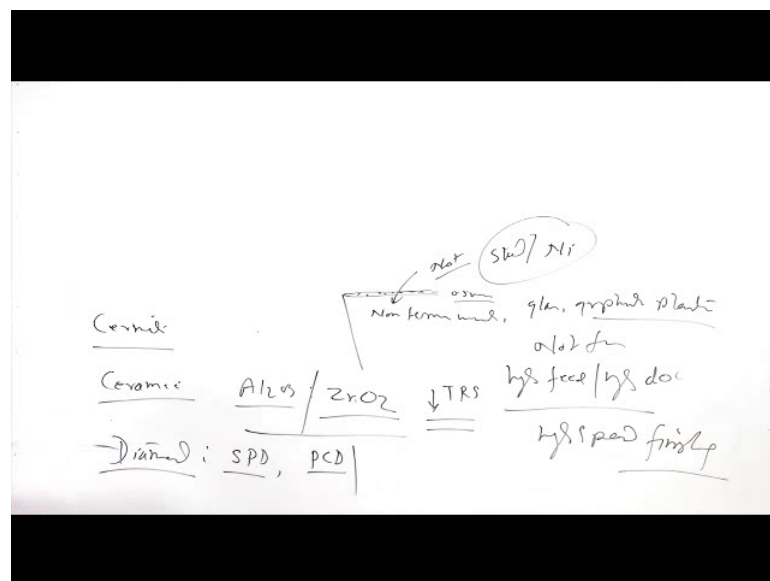 Not Steel/Ni
0.5mm
Non ferrous, glass, graphite plastic
Cermet
Not for
Ceramic Al2O3/ZrO2 ↓TRS high feed/high doc
high speed finishing
Diamond: SPD, PCD